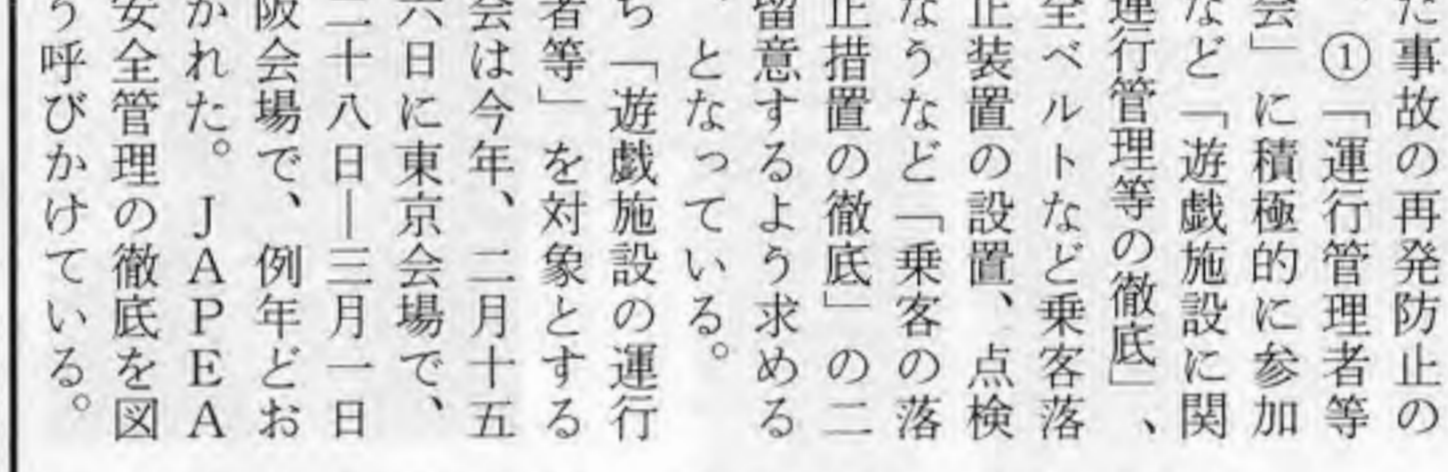 た事故の再発防止の
①「運行管理者等
会」に積極的に参加
など「遊戯施設に関
運行管理等の徹底」、
全ベルトなど乗客落
止装置の設置、点検
なうなど「乗客の落
止措置の徹底」の二
留意するよう求める
となっている。
ち「遊戯施設の運行
者等」を対象とする
会は今年、二月十五
六日に東京会場で、
二十八日―三月一日
阪会場で、例年どお
かれた。JAPEA
安全管理の徹底を図
う呼びかけている。